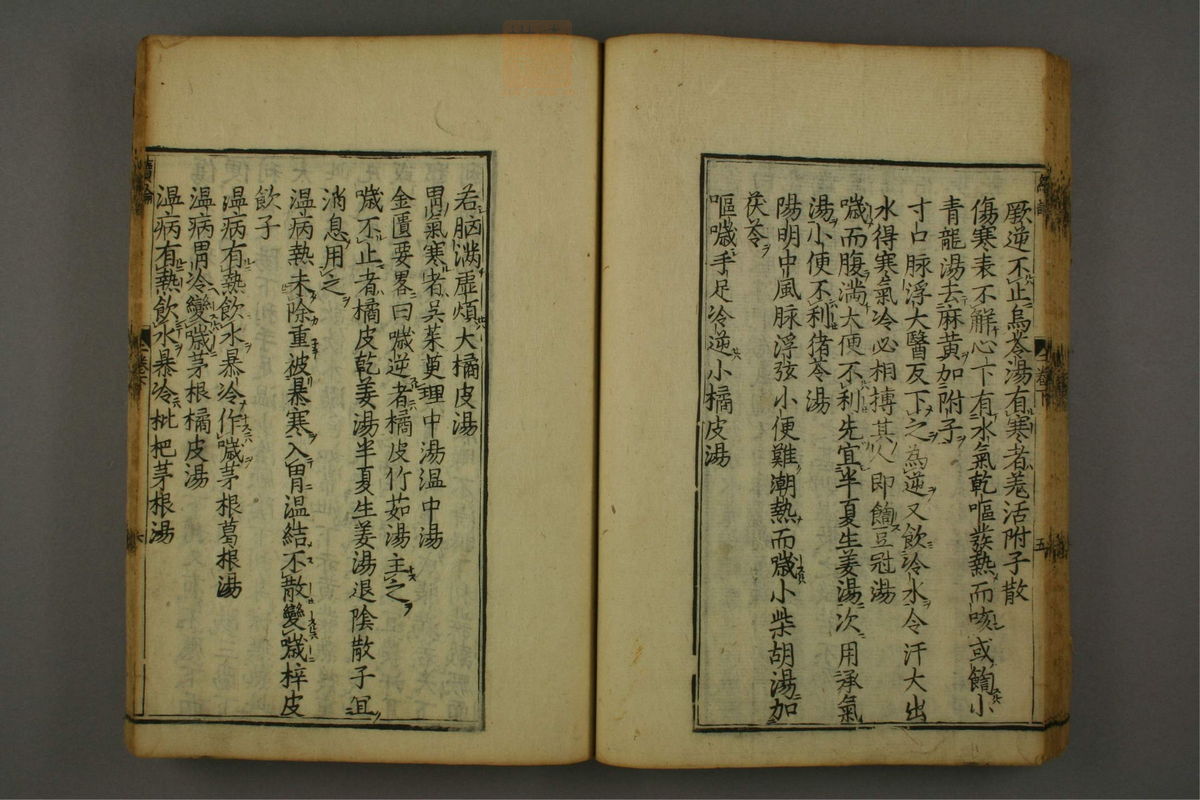 厥逆不止烏苓湯有寒者羗活附子散
傷寒表不觧心下有水氣乾嘔發熱而咳或饐小
青龍湯去麻黄加附子
寸口脉浮大醫反下之為逆又飲冷水令汗大出
水得寒氣冷必相搏其人即饐豆冦湯
噦而腹滿大便不利先宜半夏生姜湯次用承氣
湯小便不利猪苓湯
陽明中風脉浮弦小便難潮熱而噦小柴胡湯加
茯苓
嘔噦手足冷逆小橘皮湯
五
若脳滿虛煩大橘皮湯
胃氣寒者吳茱萸理中湯温中湯
金匱要畧曰噦逆者橘皮竹茹湯主之
噦不止者橘皮乾姜湯半夏生姜湯退陰散子宜
消息用之
温病熱未除重被暴寒入胃温結不散變噦梓皮
飲子
温病有熱飲水暴冷作噦茅根葛根湯
温病胃冷變噦茅根橘皮湯
温病有熱飲水暴冷枇杷茅根湯